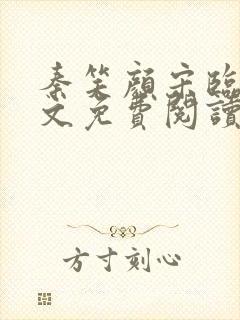 秦笑顏宋臨
文免費閱讀
方寸刻心